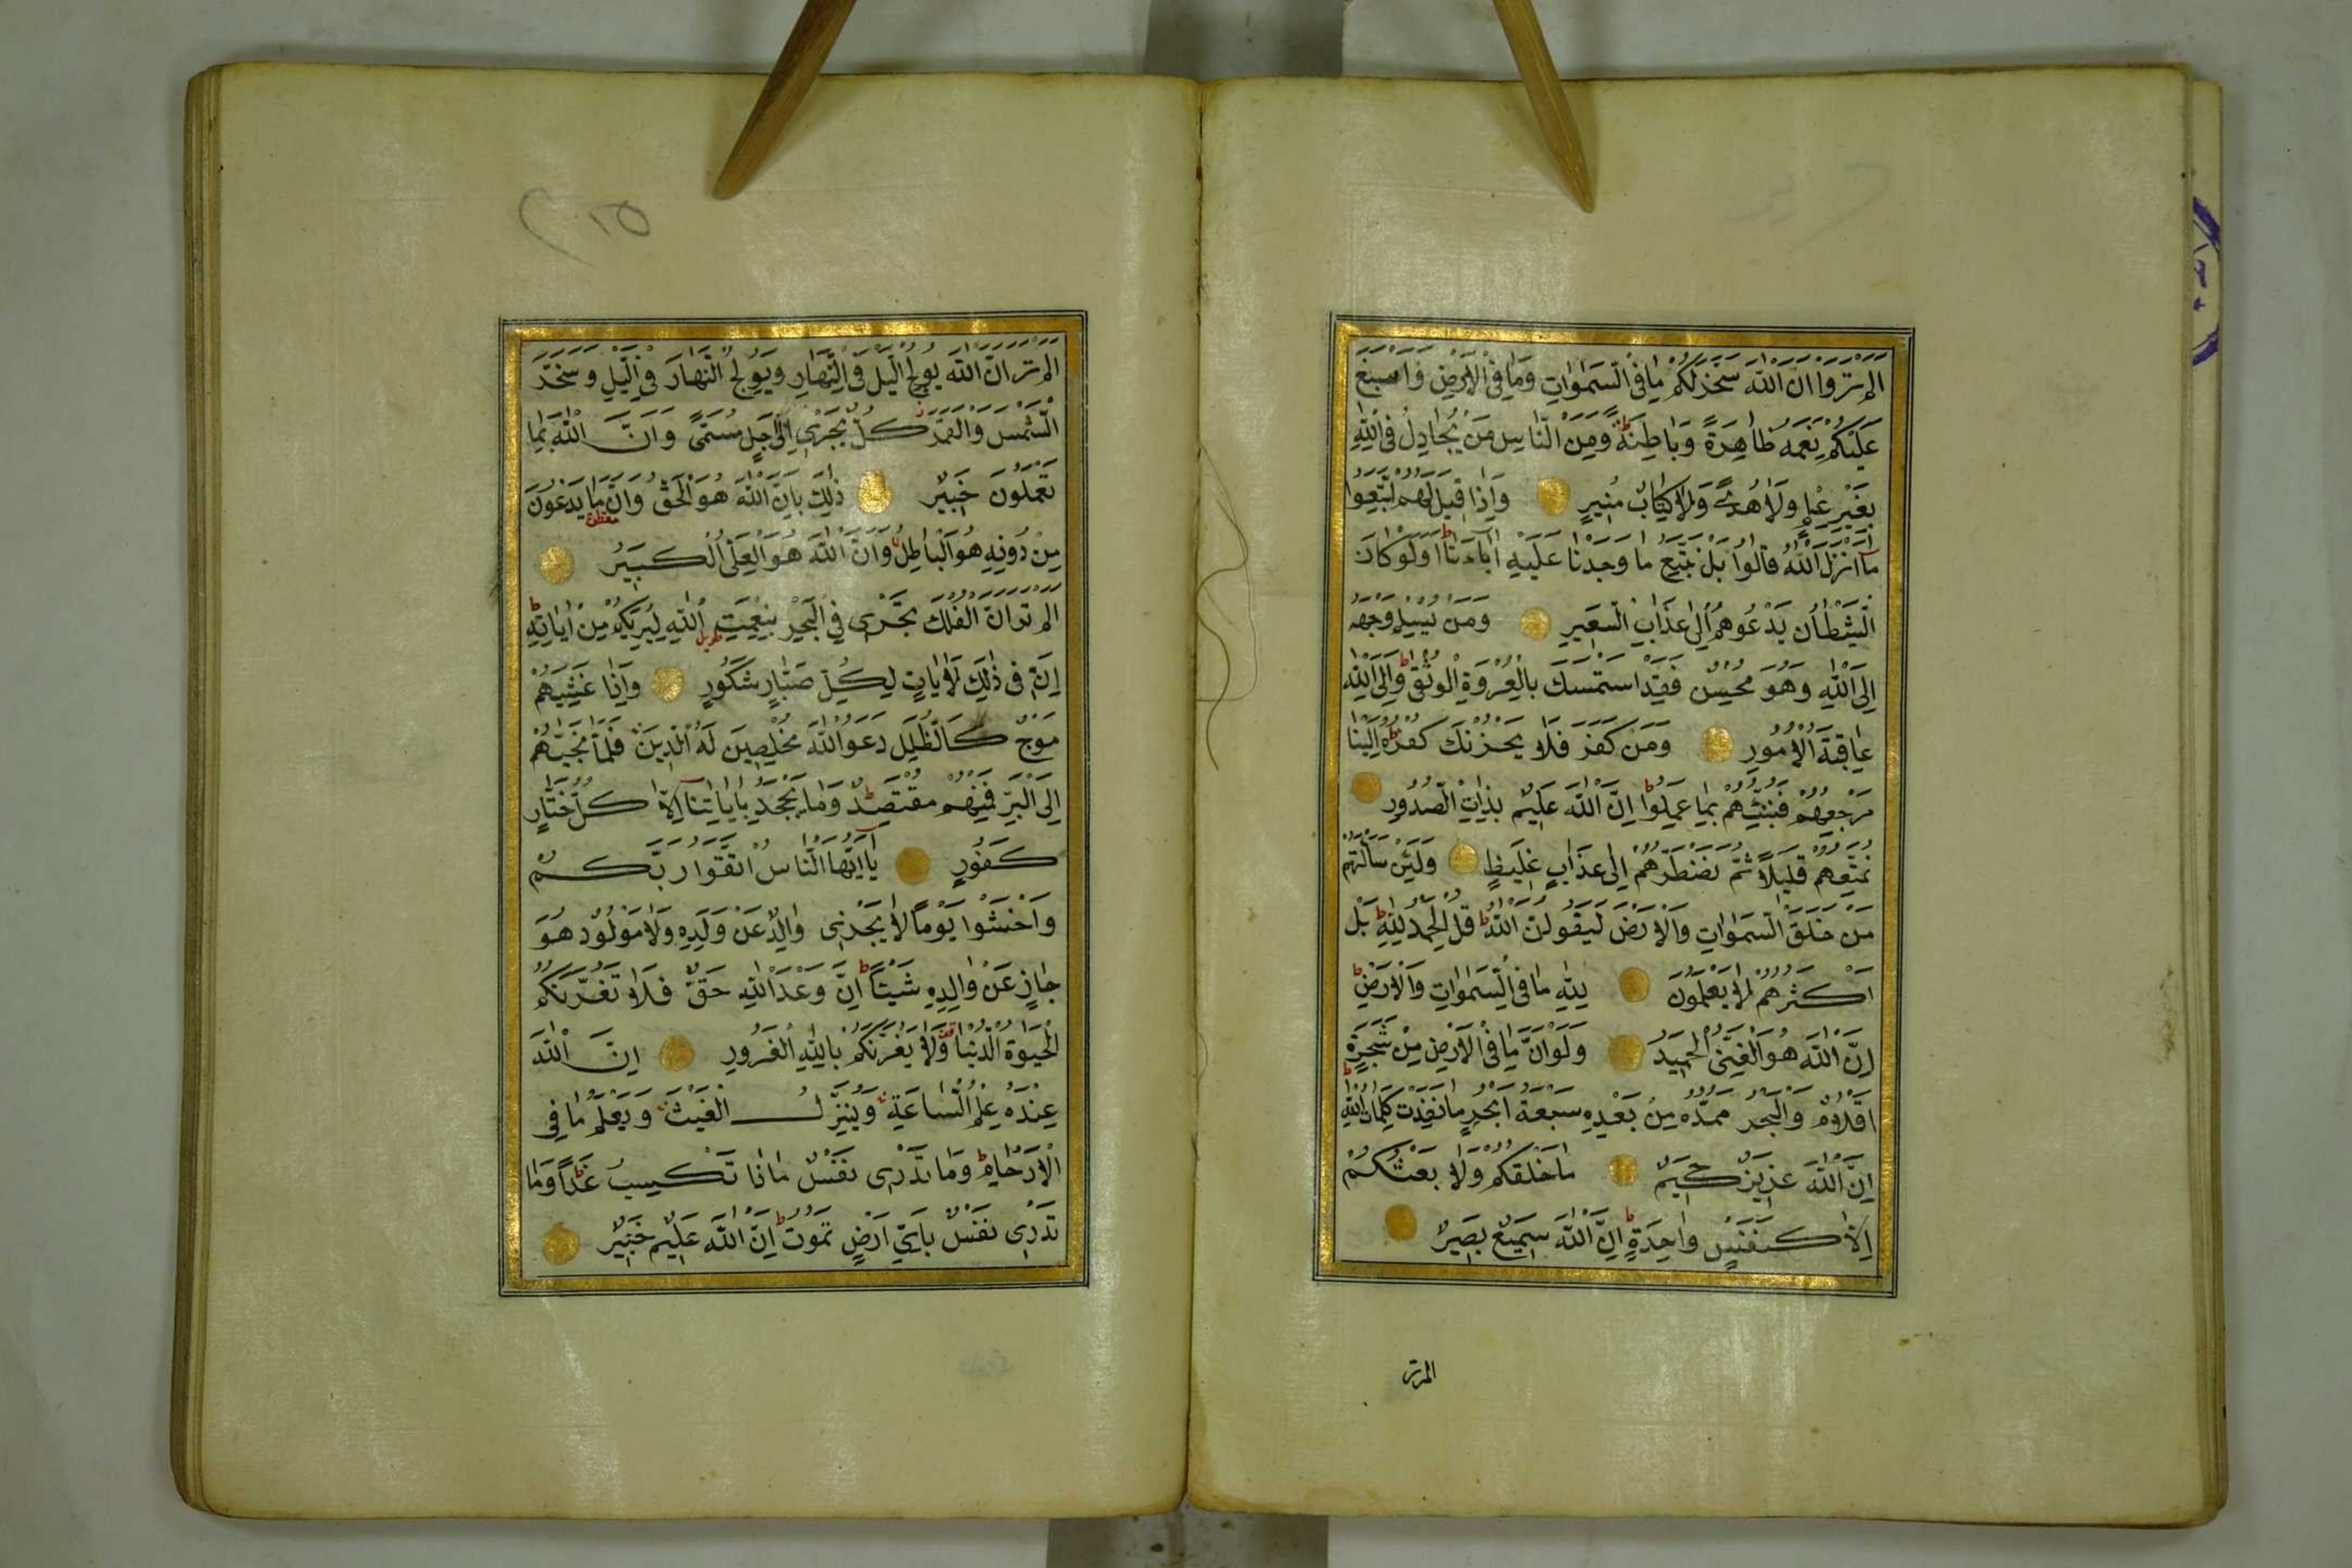 اَلَمْ تَرَوْا اَنَّ اللّٰهَ سَخَّرَ لَكُمْ مَا فِى السَّمٰوَاتِ وَمَا فِى الْاَرْضِ وَاَسْبَغَ
عَلَيْكُمْ نِعَمَهُ ظَاهِرَةً وَبَاطِنَةً ط وَمِنَ النَّاسِ مَنْ يُجَادِلُ فِى اللّٰهِ
بِغَيْرِ عِلْمٍ وَلَا هُدًى وَلَا كِتَابٍ مُنِيرٍ وَاِذَا قِيلَ لَهُمُ اتَّبِعُوا
مَٓا اَنْزَلَ اللّٰهُ قَالُوا بَلْ نَتَّبِعُ مَا وَجَدْنَا عَلَيْهِ اٰبَاءَنَا ط اَوَلَوْ كَانَ
الشَّيْطَانُ يَدْعُوهُمْ اِلٰى عَذَابِ السَّعِيرِ وَمَنْ يُسْلِمْ وَجْهَهُ
اِلَى اللّٰهِ وَهُوَ مُحْسِنٌ فَقَدِ اسْتَمْسَكَ بِالْعُرْوَةِ الْوُثْقٰى ط وَاِلَى اللّٰهِ
عَاقِبَةُ الْاُمُورِ وَمَنْ كَفَرَ فَلَا يَحْزُنْكَ كُفْرُهُ ط اِلَيْنَا
مَرْجِعُهُمْ فَنُنَبِّئُهُمْ بِمَا عَمِلُوا ط اِنَّ اللّٰهَ عَلِيمٌ بِذَاتِ الصُّدُورِ
نُمَتِّعُهُمْ قَلِيلًا ثُمَّ نَضْطَرُّهُمْ اِلٰى عَذَابٍ غَلِيظٍ وَلَئِنْ سَاَلْتَهُمْ
مَنْ خَلَقَ السَّمٰوَاتِ وَالْاَرْضَ لَيَقُولُنَّ اللّٰهُ ط قُلِ الْحَمْدُ لِلّٰهِ ط بَلْ
اَكْثَرُهُمْ لَا يَعْلَمُونَ لِلّٰهِ مَا فِى السَّمٰوَاتِ وَالْاَرْضِ ط
اِنَّ اللّٰهَ هُوَ الْغَنِىُّ الْحَمِيدُ وَلَوْ اَنَّ مَا فِى الْاَرْضِ مِنْ شَجَرَةٍ
اَقْلَامٌ وَالْبَحْرُ يَمُدُّهُ مِنْ بَعْدِهِ سَبْعَةُ اَبْحُرٍ مَا نَفِدَتْ كَلِمَاتُ اللّٰهِ ط
اِنَّ اللّٰهَ عَزِيزٌ حَكِيمٌ مَا خَلْقُكُمْ وَلَا بَعْثُكُمْ
اِلَّا كَنَفْسٍ وَاحِدَةٍ ط اِنَّ اللّٰهَ سَمِيعٌ بَصِيرٌ
المرتر
اَلَمْ تَرَ اَنَّ اللّٰهَ يُولِجُ الَّيْلَ فِى النَّهَارِ وَيُولِجُ النَّهَارَ فِى الَّيْلِ وَسَخَّرَ
الشَّمْسَ وَالْقَمَرَ كُلٌّ يَجْرِى اِلٰى اَجَلٍ مُسَمًّى وَاَنَّ اللّٰهَ بِمَا
تَعْمَلُونَ خَبِيرٌ ذٰلِكَ بِاَنَّ اللّٰهَ هُوَ الْحَقُّ وَاَنَّ مَا يَدْعُونَ
مِنْ دُونِهِ هُوَ الْبَاطِلُ وَاَنَّ اللّٰهَ هُوَ الْعَلِىُّ الْكَبِيرُ
اَلَمْ تَرَ اَنَّ الْفُلْكَ تَجْرِى فِى الْبَحْرِ بِنِعْمَتِ اللّٰهِ لِيُرِيَكُمْ مِنْ اٰيَاتِهِ ط
اِنَّ فِى ذٰلِكَ لَاٰيَاتٍ لِكُلِّ صَبَّارٍ شَكُورٍ وَاِذَا غَشِيَهُمْ
مَوْجٌ كَالظُّلَلِ دَعَوُا اللّٰهَ مُخْلِصِينَ لَهُ الدِّينَ فَلَمَّا نَجّٰيهُمْ
اِلَى الْبَرِّ فَمِنْهُمْ مُقْتَصِدٌ ط وَمَا يَجْحَدُ بِاٰيَاتِنَا اِلَّا كُلُّ خَتَّارٍ
كَفُورٍ يَٓا اَيُّهَا النَّاسُ اتَّقُوا رَبَّكُمْ
وَاخْشَوْا يَوْمًا لَا يَجْزِى وَالِدٌ عَنْ وَلَدِهِ وَلَا مَوْلُودٌ هُوَ
جَازٍ عَنْ وَالِدِهِ شَيْئًا ط اِنَّ وَعْدَ اللّٰهِ حَقٌّ فَلَا تَغُرَّنَّكُمُ
الْحَيٰوةُ الدُّنْيَا وَلَا يَغُرَّنَّكُمْ بِاللّٰهِ الْغَرُورُ اِنَّ اللّٰهَ
عِنْدَهُ عِلْمُ السَّاعَةِ وَيُنَزِّلُ الْغَيْثَ وَيَعْلَمُ مَا فِى
الْاَرْحَامِ ط وَمَا تَدْرِى نَفْسٌ مَاذَا تَكْسِبُ غَدًا ط وَمَا
تَدْرِى نَفْسٌ بِاَىِّ اَرْضٍ تَمُوتُ ط اِنَّ اللّٰهَ عَلِيمٌ خَبِيرٌ